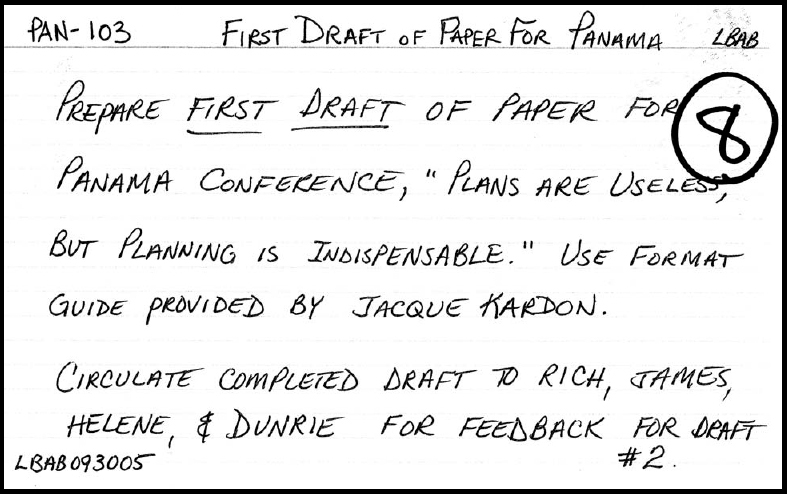 PAN-103 FIRST DRAFT OF PAPER FOR PANAMA LBAB
PREPARE FIRST DRAFT OF PAPER FOR 8
PANAMA CONFERENCE, "PLANS ARE USELESS,
BUT PLANNING IS INDISPENSABLE." USE FORMAT
GUIDE PROVIDED BY JACQUE KARDON.
CIRCULATE COMPLETED DRAFT TO RICH, JAMES,
HELENE, & DUNRIE FOR FEEDBACK FOR DRAFT
LBAB093005 #2.